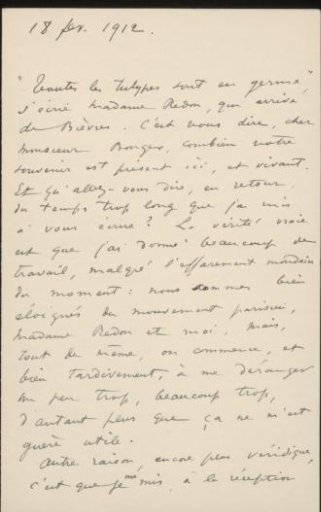 18 fev. 1912.
"Toutes les tulypes sont en germe",
s'écrie madame Redon, qui arrive
de Bièvres. C'est vous dire, cher
monsieur Bonger, combien votre
souvenir est présent ici, et vivant.
Et qu'allez-vous dire, en retour,
du temps trop long que j'ai mis
à vous écrire ? La vérité vraie
est que j'ai donné beaucoup de
travail, malgré l'effarement mondain
du moment : nous sommes bien
éloignés du mouvement parisien,
madame Redon et moi. Mais,
tout de même, on commence, et
bien tardivement, à me déranger
un peu trop, beaucoup trop,
d'autant plus que ça ne m'est
guère utile.
Autre raison, encore plus véridique,
c'est que je me mis, à la réception